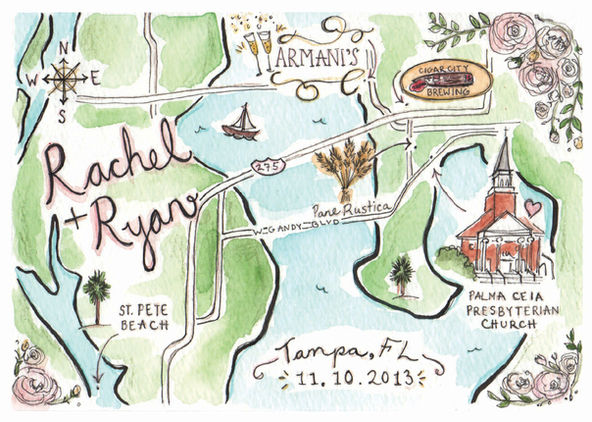 N
W E
S
ARMANI'S
CIGAR CITY
BREWING
Rachel
+ Ryan
275
Pane Rustica
W GANDY BLVD
ST. PETE
BEACH
PALMA CEIA
PRESBYTERIAN
CHURCH
Tampa, FL
11.10.2013